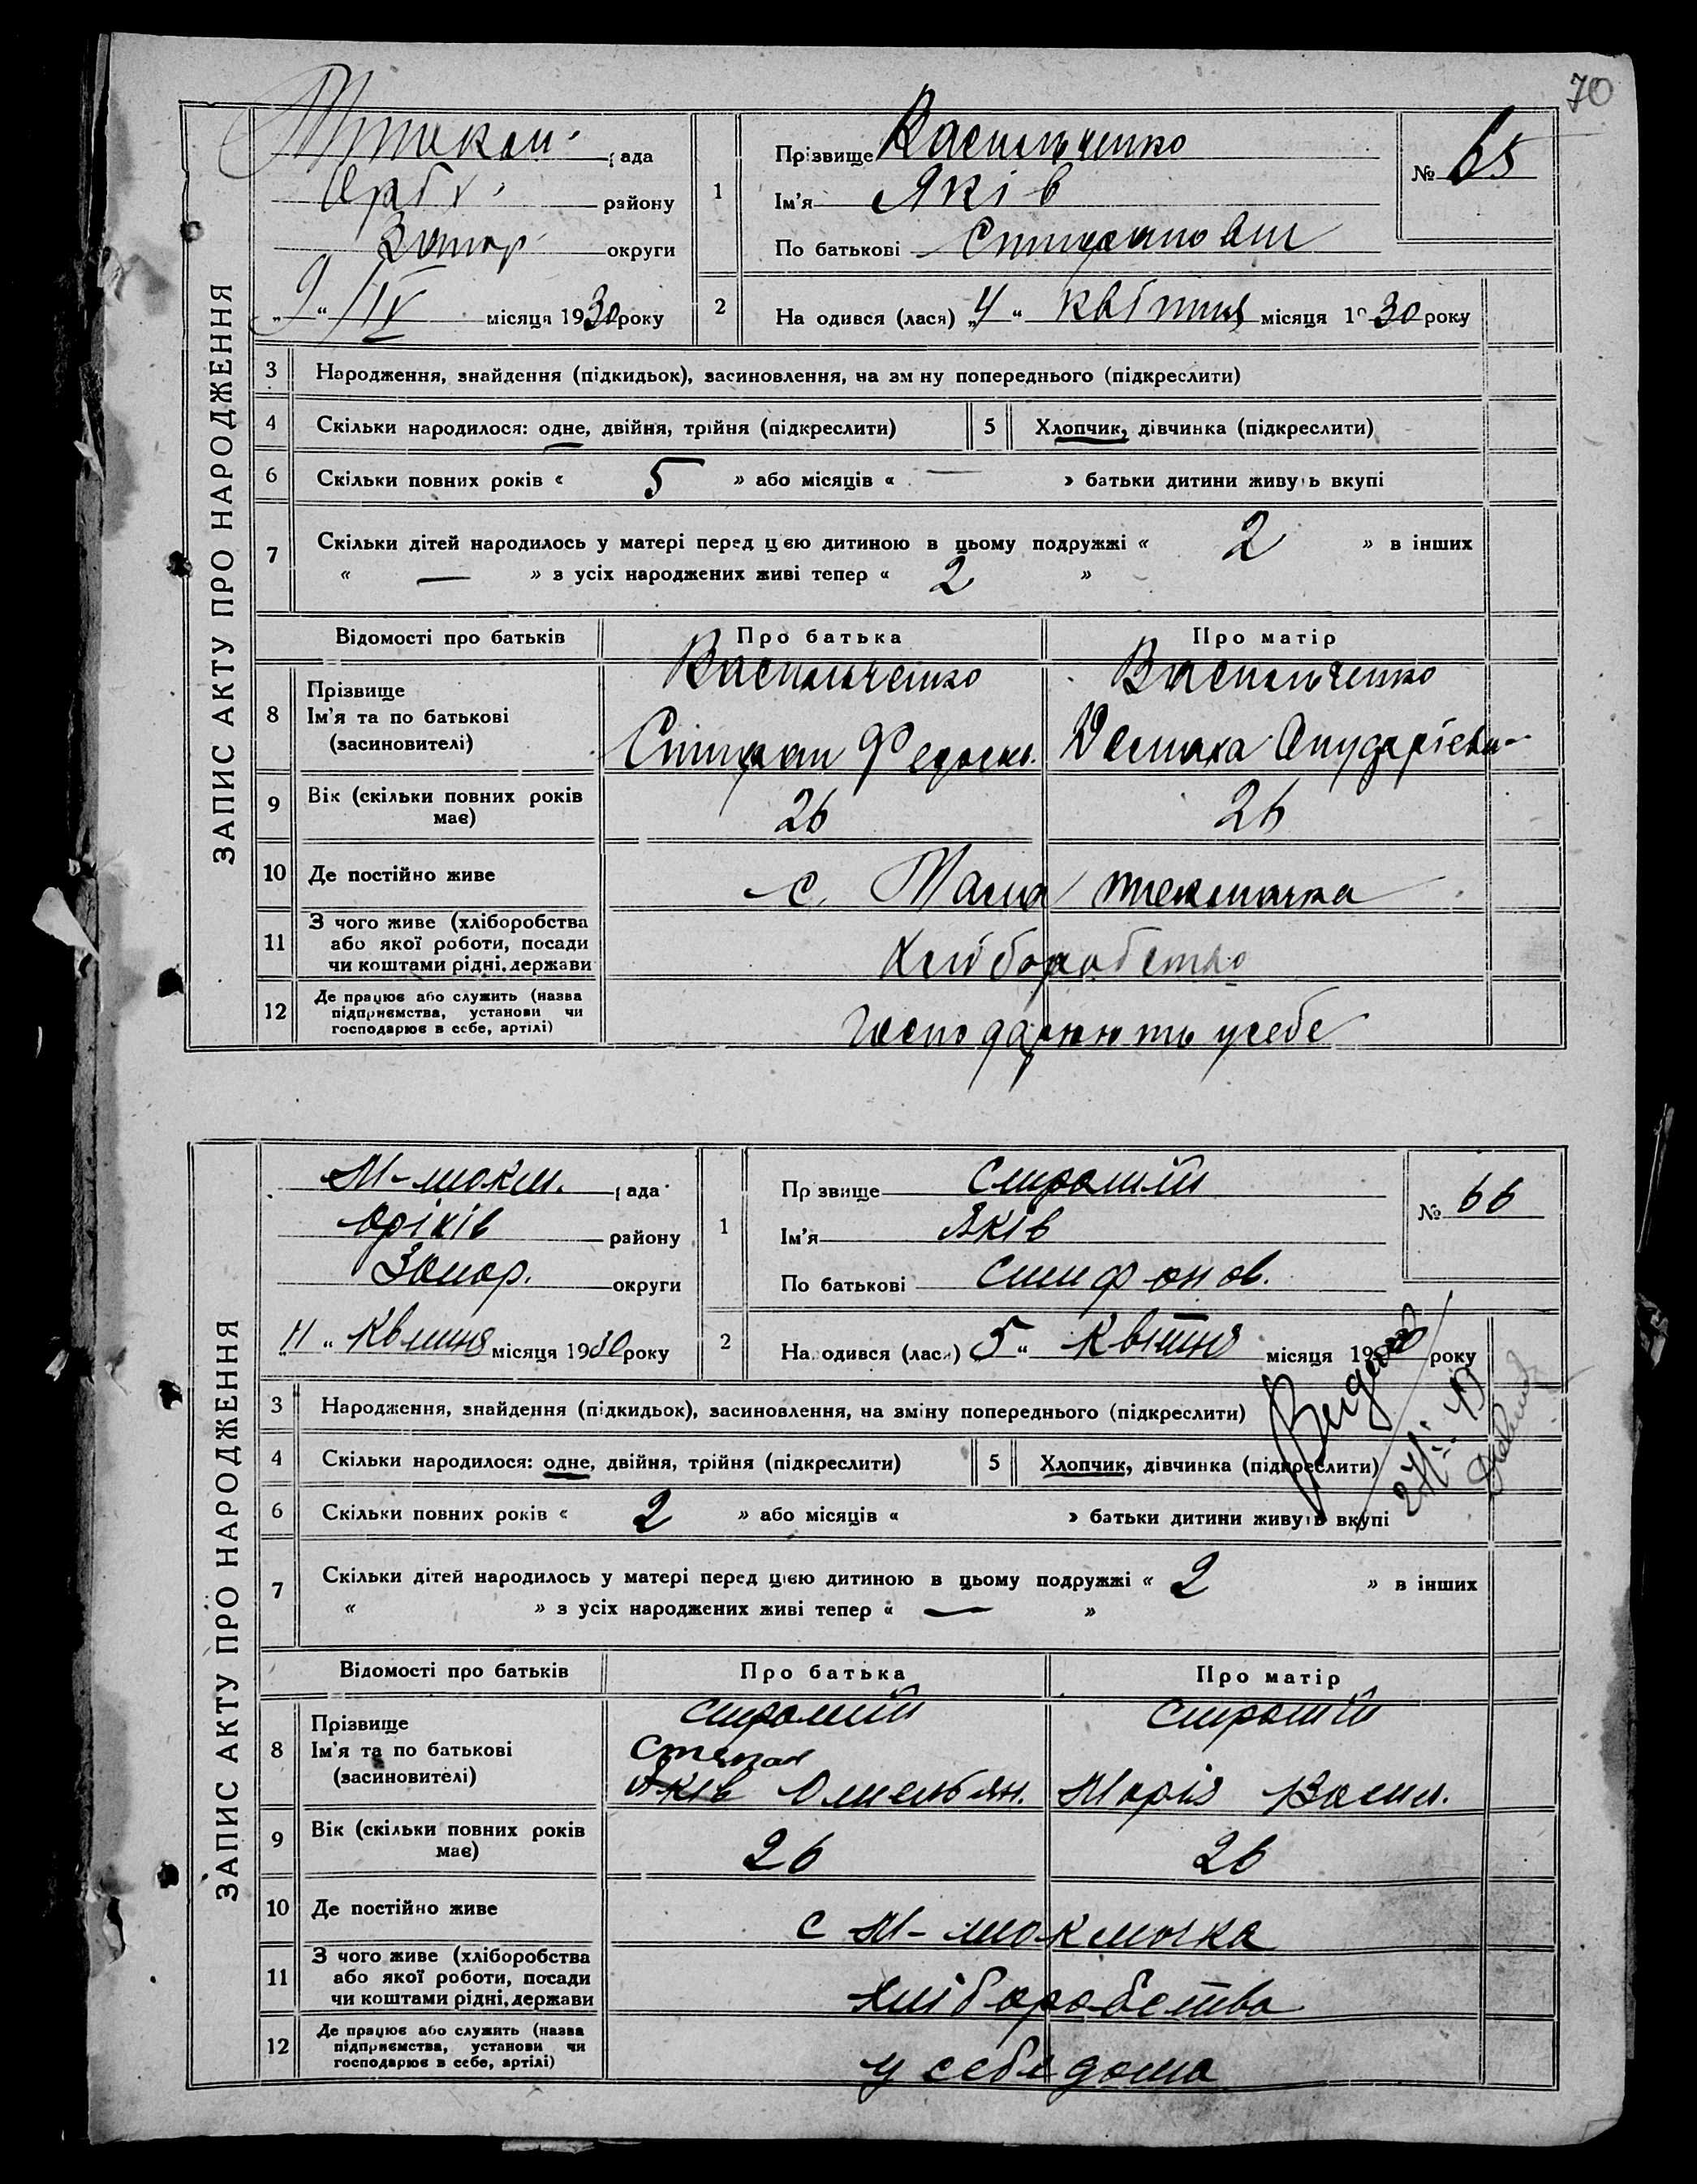 70
ЗАПИС АКТУ ПРО НАРОДЖЕННЯ
рада
району
Запор округи
„9“ IV місяця 1930 року
1 Прізвище Васильченко
Ім'я Яків
По батькові Степанович
№ 65
2 На одився (лася) „4“ квітня місяця 1930 року
3 Народження, знайдення (підкидьок), засиновлення, на зм ну попереднього (підкреслити)
4 Скільки народилося: одне, двійня, трійня (підкреслити) 5 Хлопчик, дівчинка (підкреслити)
6 Скільки повних років « 5 » або місяців « — » батьки дитини живуть вкупі
7 Скільки дітей народилось у матері перед цією дитиною в цьому подружжі « 2 » в інших
« — » з усіх народжених живі тепер « 2 »
Відомості про батьків Про батька Про матір
8 Прізвище Васильченко Васильченко
Ім'я та по батькові
(засиновителі) Степан
9 Вік (скільки повних років має) 26 26
10 Де постійно живе с. Мала токмачка
11 З чого живе (хліборобства
або якої роботи, посади
чи коштами рідні, держави Хліборобство
12 Де працює або служить (назва
підприємства, установи чи
господарює в себе, артілі) Господарюють у себе
ЗАПИС АКТУ ПРО НАРОДЖЕННЯ
М-токм. рада
Оріхів району
Запор. округи
„11“ Квітня місяця 1930 року
1 Пр звище
Ім'я Яків
По батькові
№ 66
2 На одився (лася) 5“ Квітня місяця 1930 року
3 Народження, знайдення (підкидьок), засиновлення, на зміну попереднього (підкреслити)
4 Скільки народилося: одне, двійня, трійня (підкреслити) 5 Хлопчик, дівчинка (підкреслити)
6 Скільки повних років « 2 » або місяців « » батьки дитини живуть вкупі
7 Скільки дітей народилось у матері перед цією дитиною в цьому подружжі « 2 » в інших
« » з усіх народжених живі тепер « — »
Відомості про батьків Про батька Про матір
8 Прізвище
Ім'я та по батькові Степан
(засиновителі) Яків Омельян. Марія Васил.
9 Вік (скільки повних років має) 26 26
10 Де постійно живе с М-токмачка
11 З чого живе (хліборобства
або якої роботи, посади
чи коштами рідні, держави хліборобства
12 Де працює або служить (назва
підприємства, установи чи
господарює в себе, артілі) у себе дома